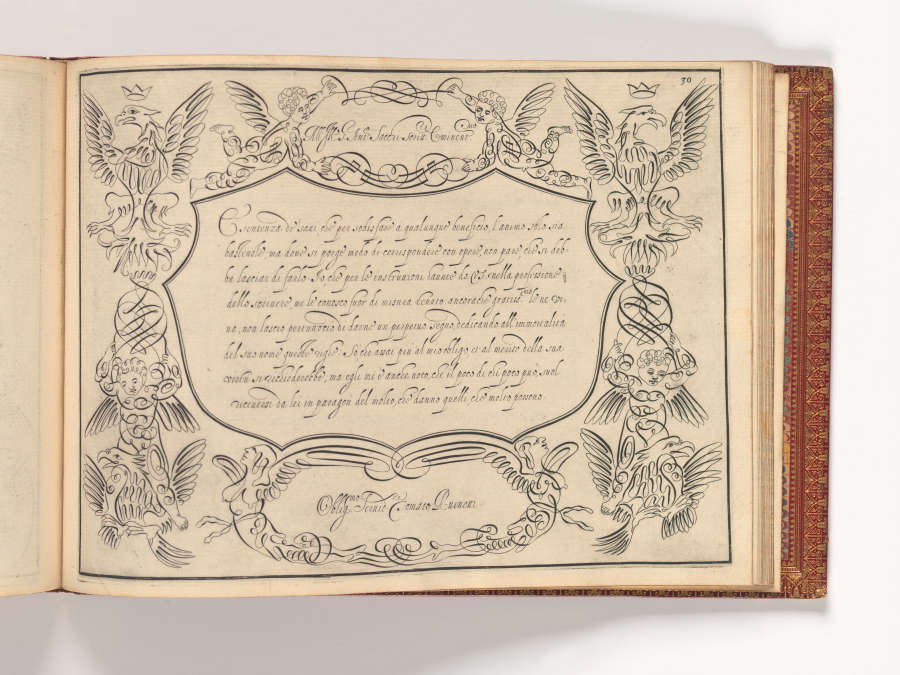 30
È sentenza de savi, che per sodisfare a qualunque beneficio, l'animo solo sia
bastevole, ma dove si porge modo di corrispondere con opere, non pare che si deb-
be lasciar di farlo. Io che per le instruzzioni havute da VS. nella professione
dello scrivere, me le conosco fuor di misura tenuto, ancorache gratis.mo le ne vi-
va, non lascio pertuttociò di darne un perpetuo segno, dedicando all'immortalità
del suo nome queste righe. So che assai più al mio obligo, et al merito della sua
virtù si richiederebbe, ma egli mi è anche noto, che il poco di chi poco può, suol
riceversi da lei in paragon del molto, che danno quelli, che molto possono.
Oblig.mo Tomaso Ruinetti